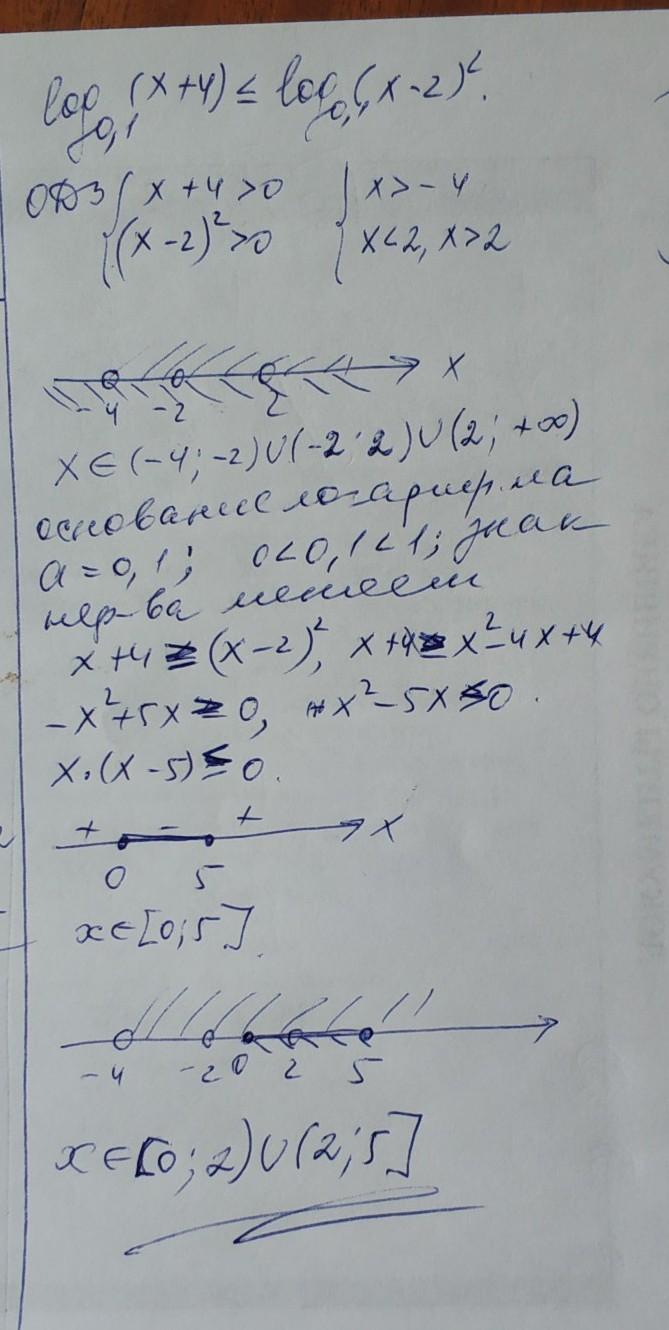 log₀,₁(x+4) ≤ log₀,₁(x-2)².
ОДЗ { x+4>0 { x>-4
(x-2)²>0 x<2, x>2
-4 -2 2 x
x∈(-4;-2)∪(-2;2)∪(2;+∞)
основание логарифма
a=0,1; 0<0,1<1; знак
нер-ва меняем
x+4 ≥ (x-2)², x+4 ≥ x²-4x+4
-x²+5x ≥ 0, x²-5x ≤ 0.
x·(x-5) ≤ 0.
+ - + x
0 5
x∈[0;5].
-4 -2 0 2 5
x∈[0;2)∪(2;5]